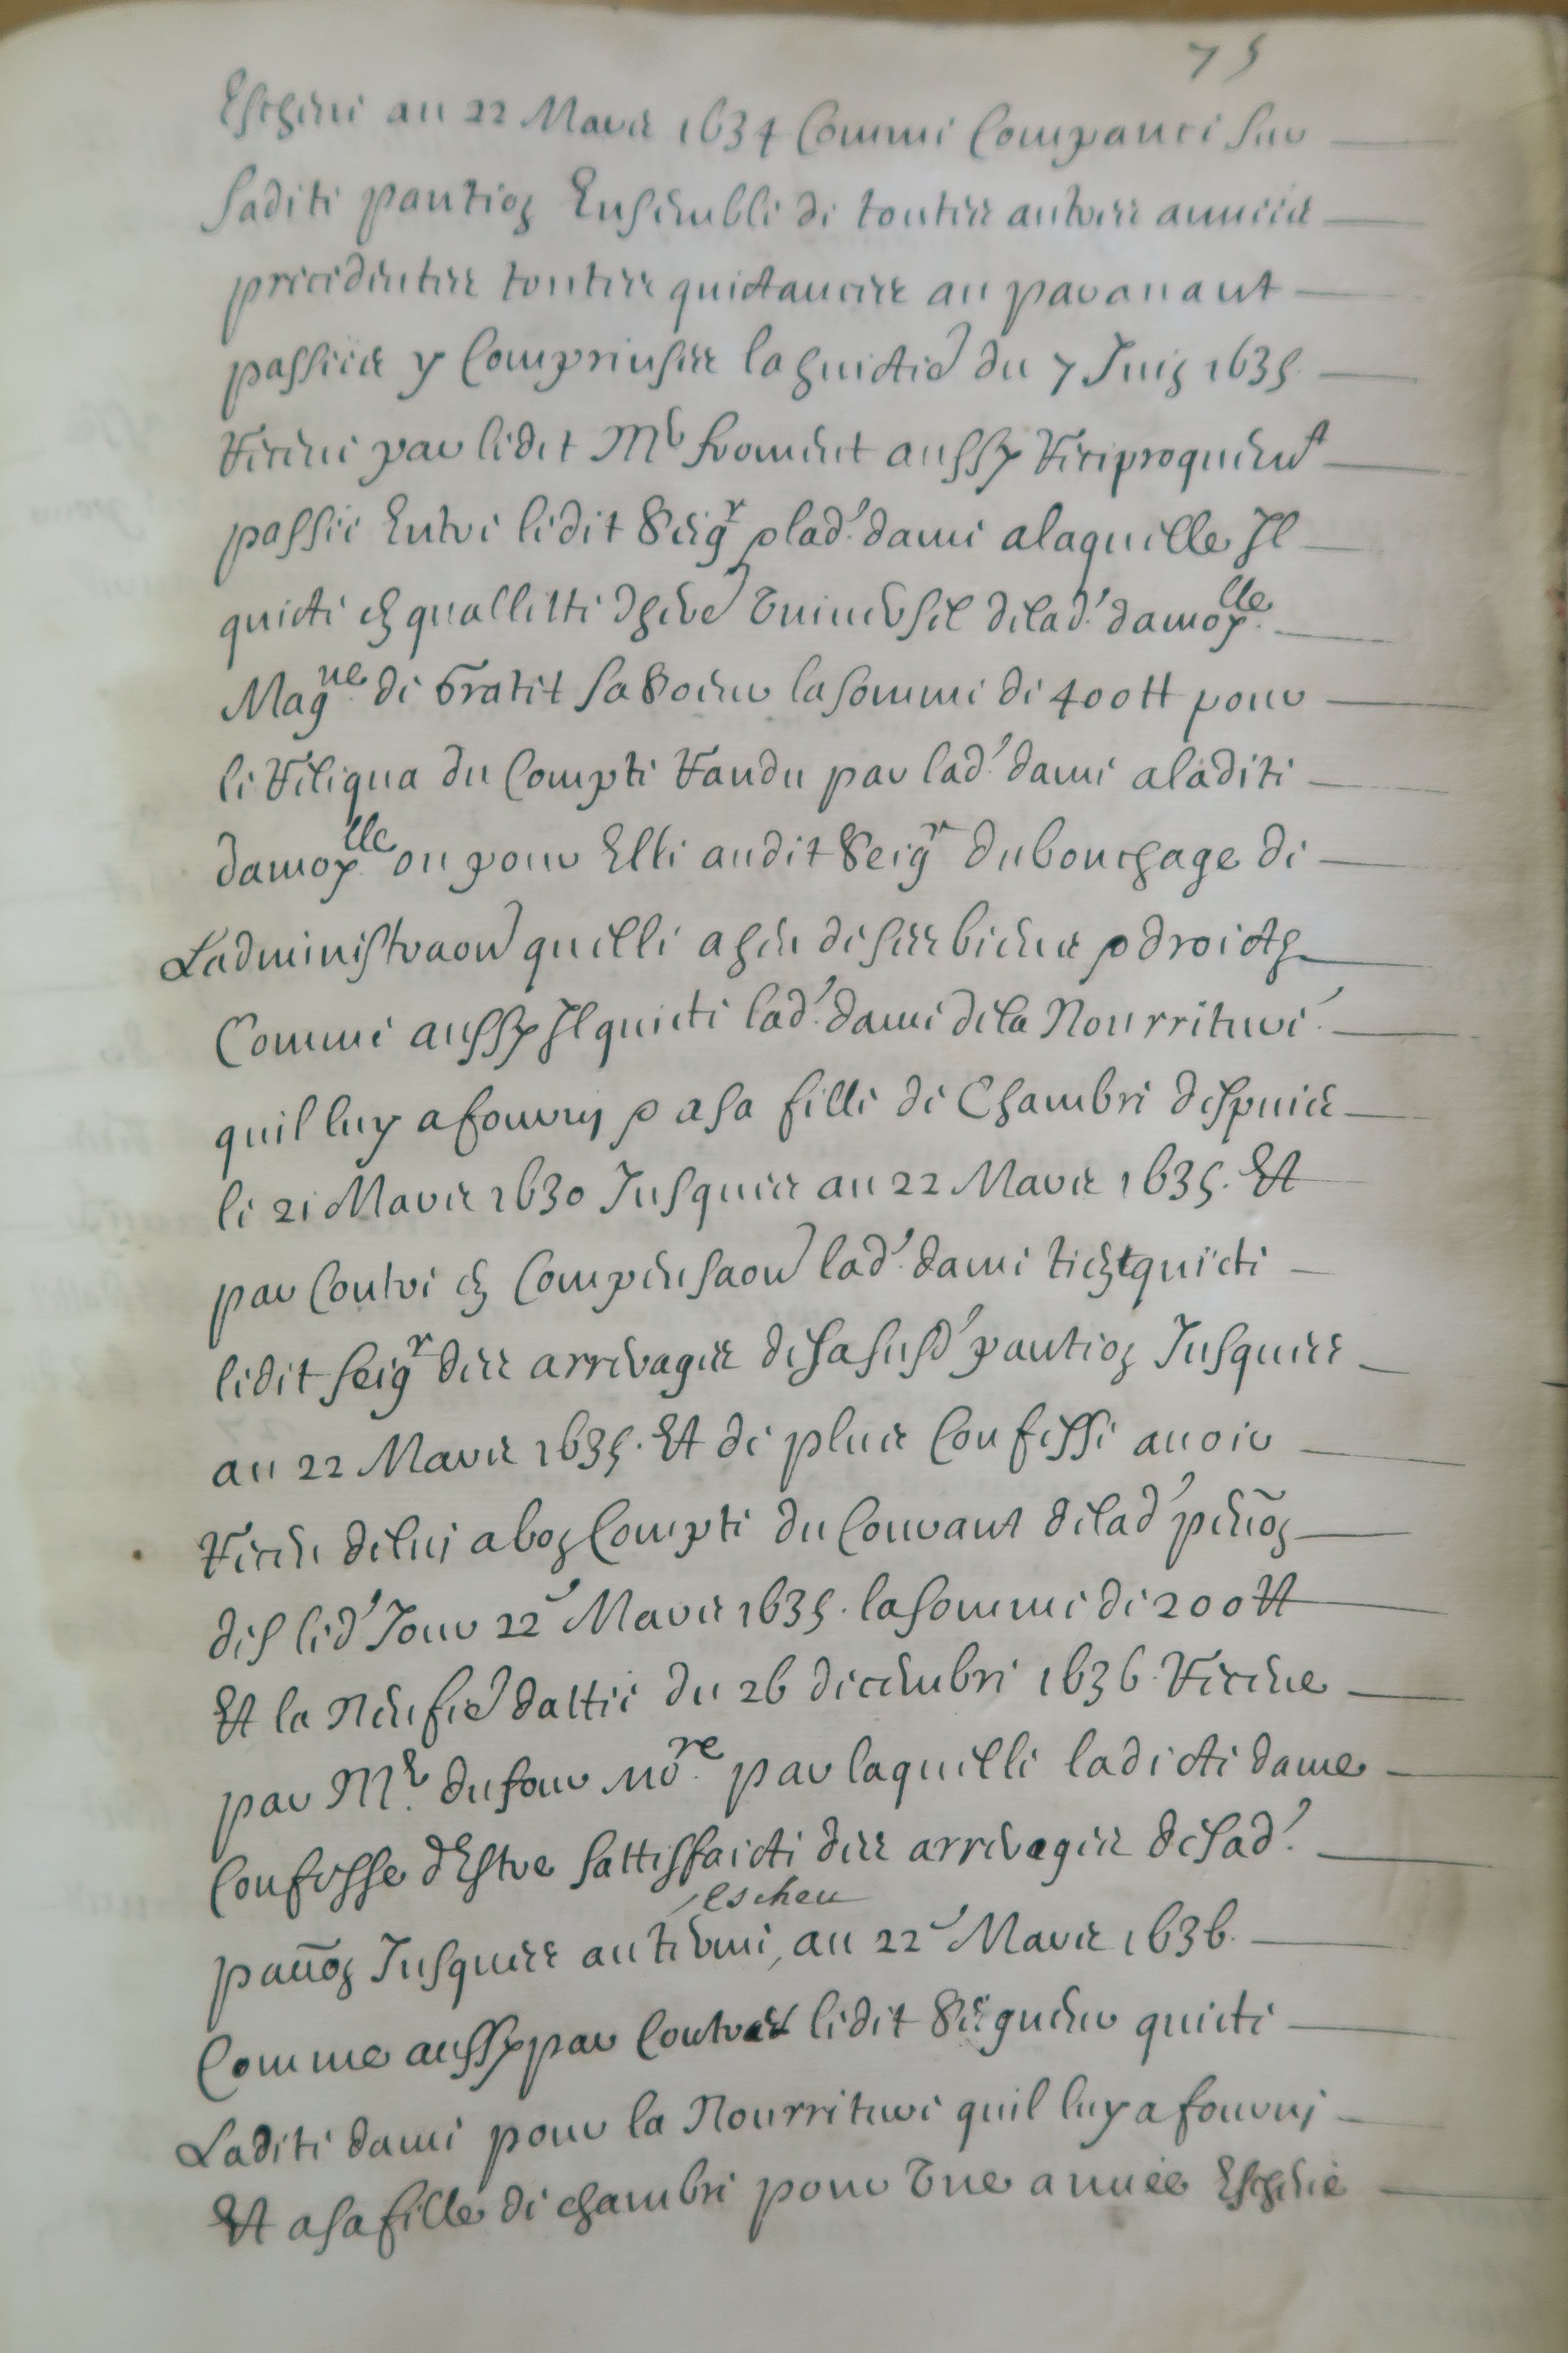 75
Escheue au 22 Mars 1634 Comme Comprinse sur
sadite pantion Ensemble de toutes autres années
precedentes toutes quictances au paravant
passées y Comprinses la huictie du 7 Juin 1635
Receue par ledit Mr froment aussy Reciproquemt
passée Entre ledit Seigr & lad. dame a laquelle Il
quicte en quallitté dherer Vniuersel de lad. damoylle
Magne de Gratet sa Soeur la somme de 400 tt pour
le Reliqua du Compte Randu par lad. dame a ladite
damoylle ou pour Elle audit Seigr du bouchage de
Ladministraon quelle a heu de ses biens & droicts
Comme aussy Il quicte lad. dame de la Nourriture
quil luy a fourny & a sa fille de Chambre despuis
le 21 Mars 1630 Jusques au 22 Mars 1635. Et
par Contre en Compensaon lad. dame tient quicte
ledit Seigr des arrerages de sa susd. pantion Jusques
au 22 Mars 1635. Et de plus Confesse auoir
Receu de luy a bon Compte du Courant de lad. penon
des led. Jour 22e Mars 1635. la somme de 200 tt
Et la Neufie dattée du 26 decembre 1636. Receue
par Me. dufour nore par laquelle ladicte dame
Confesse dEstre sattisfaicte des arrerages de sad.
panon Jusques au terme, escheu au 22e Mars 1636.
Comme aussy par Contre ledit Seigneur quicte
Ladite dame pour la Nourriture quil luy a fourny
Et a sa fille de chambre pour Vne année Escheue